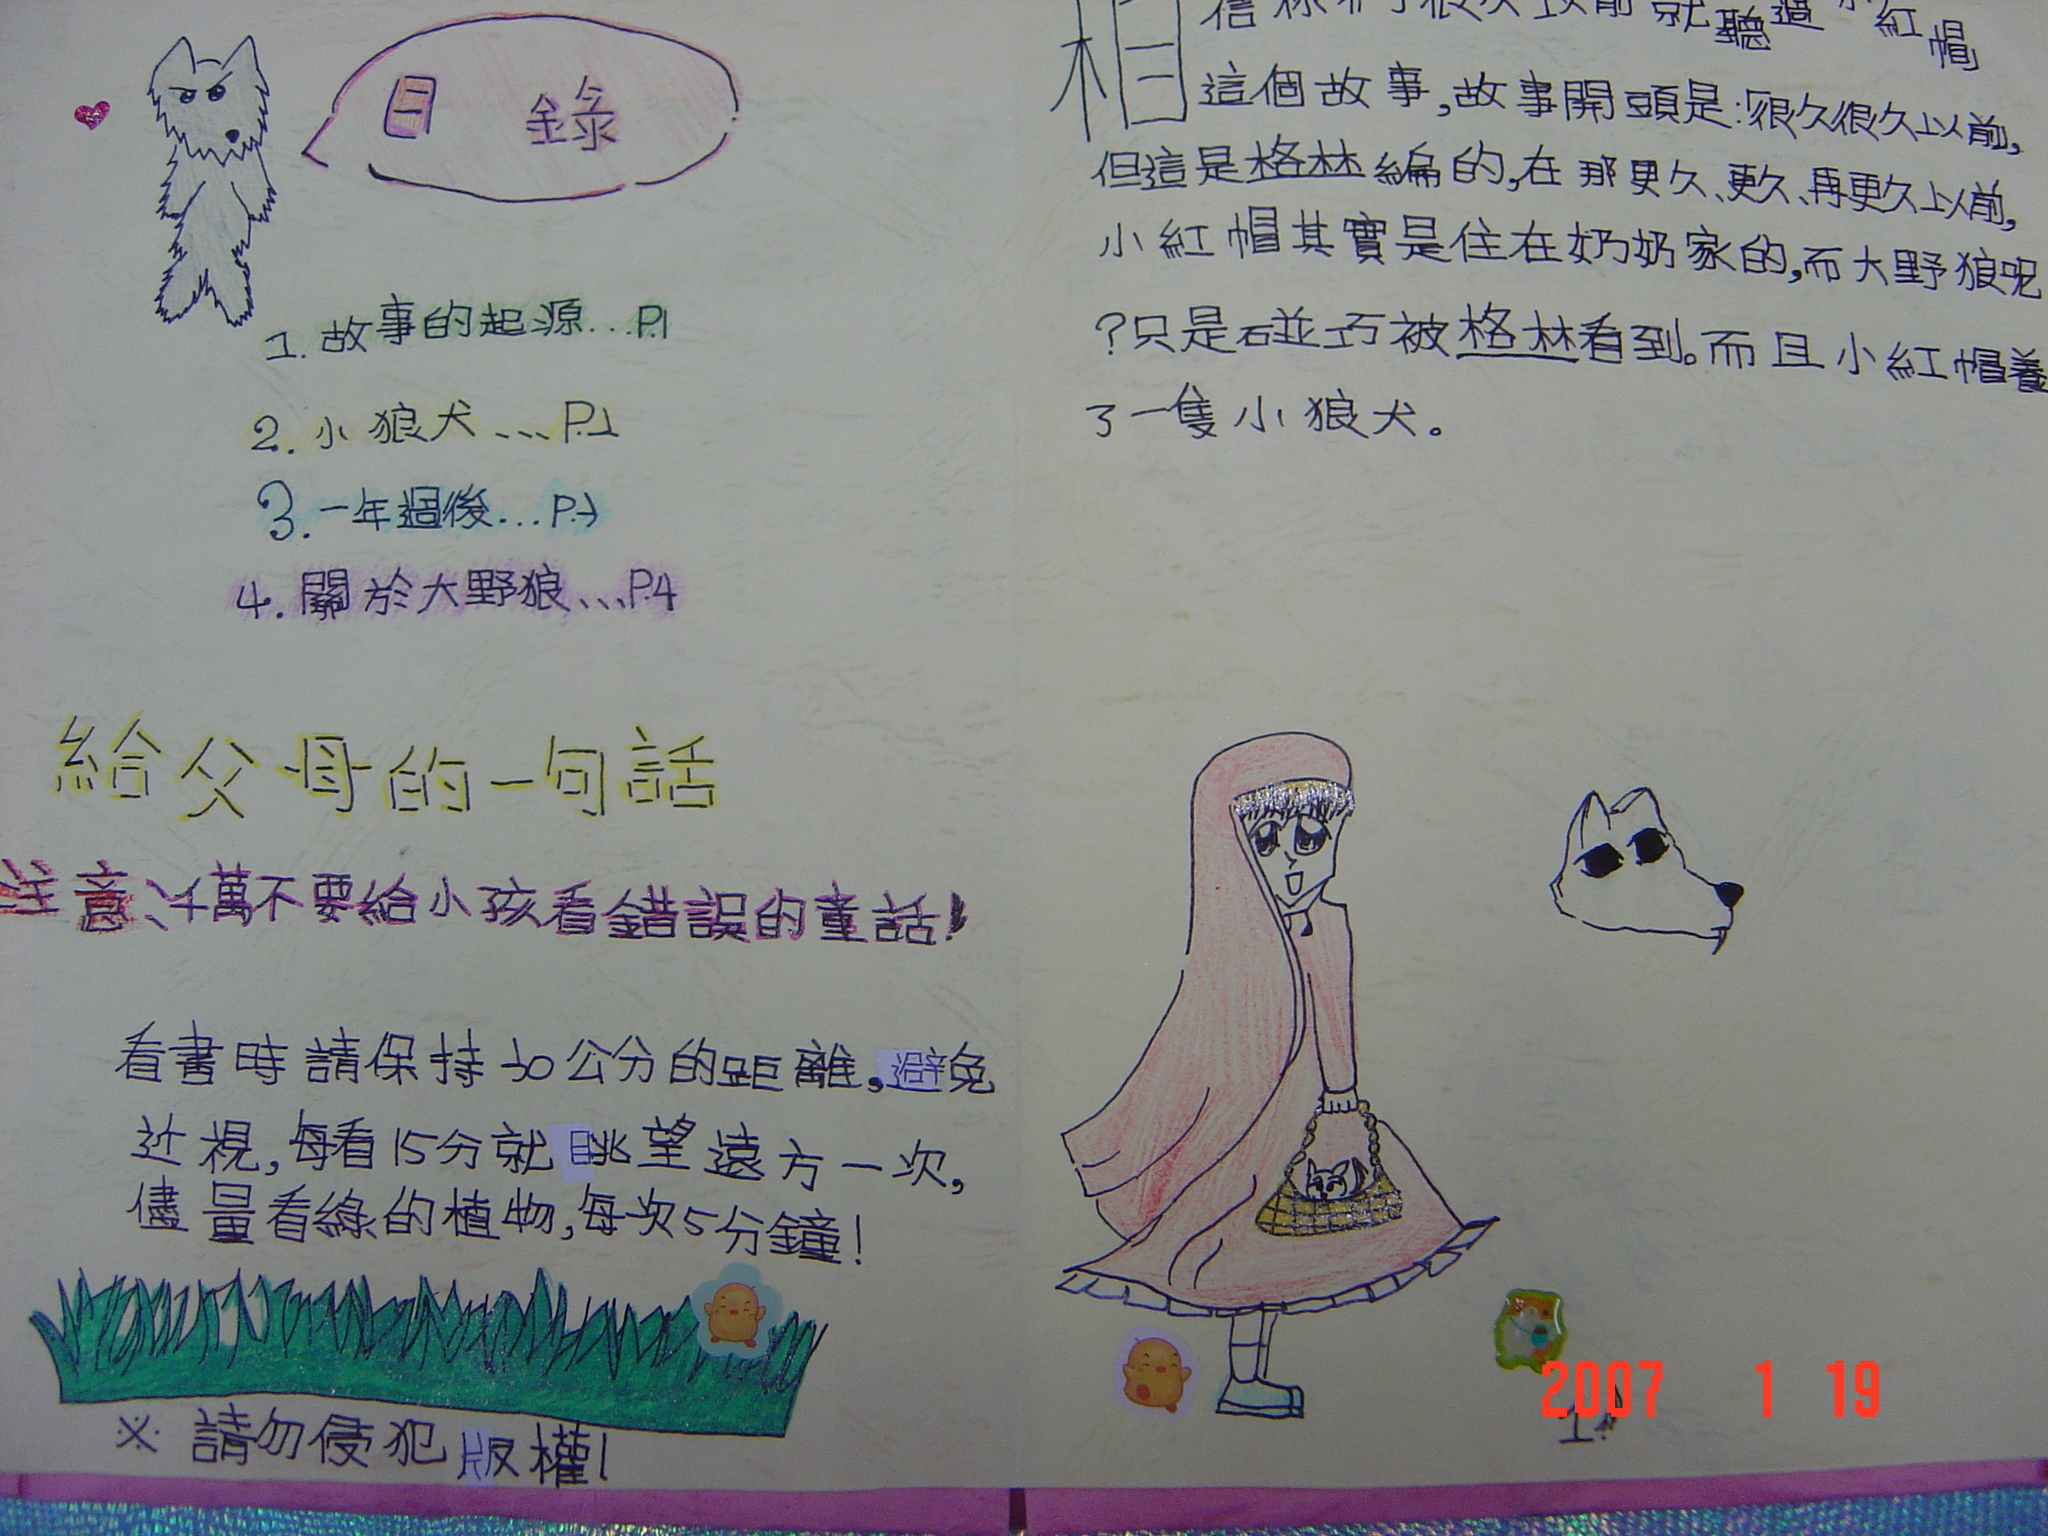 目 錄
1. 故事的起源...P.1
2. 小狼犬...P.1
3. 一年過後...P.3
4. 關於大野狼...P.4
給父母的一句話
注意、千萬不要給小孩看錯誤的童話!
看書時請保持30公分的距離,避免
近視,每看15分就眺望遠方一次,
儘量看綠的植物,每次5分鐘!
※ 請勿侵犯版權!
相信你們很久以前就聽過小紅帽
這個故事,故事開頭是:「很久很久以前,
但這是格林編的,在那更久、更久、再更久以前,
小紅帽其實是住在奶奶家的,而大野狼呢
?只是碰巧被格林看到。而且小紅帽養
了一隻小狼犬。
2007 1 19
1